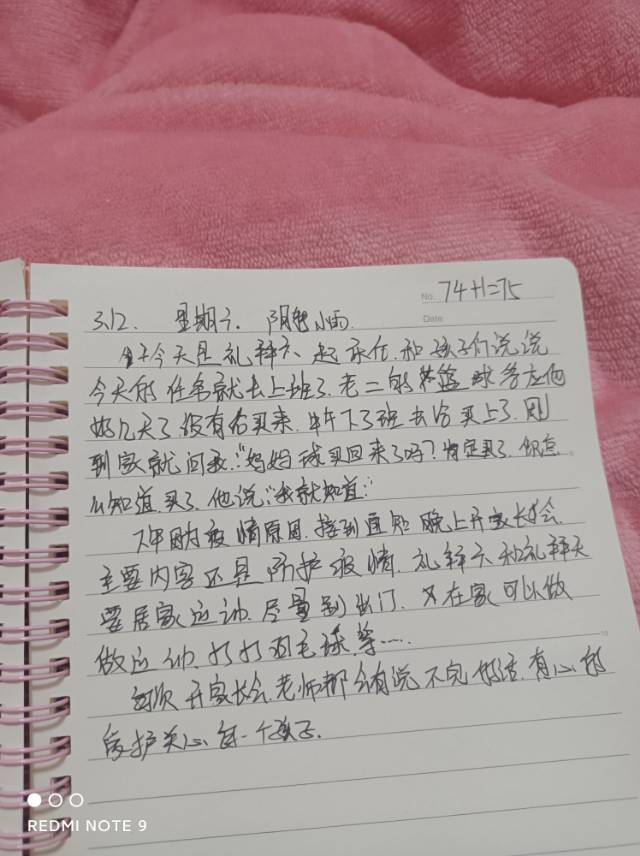 No. 74+1=75
Date
3.12. 星期六. 阴转小雨.
今天是礼拜六 起床后. 和孩子们说说
今天的任务就去上班了. 老二的篮球答应他
好几天了. 没有给买来. 中午下了班去给买上了. 刚
到家就问我:"妈妈球买回来了吗? 肯定买了. 你怎
么知道买了. 他说:"我就知道."
下午因为疫情原因. 接到通知 晚上开家长会.
主要内容还是防护疫情. 礼拜六和礼拜天
要居家运动. 尽量别出门. 又在家可以做
做运动. 打打羽毛球. 等....
每次开家长会. 老师都会有说不完的话. 有心的
爱护关心每一个孩子.
REDMI NOTE 9